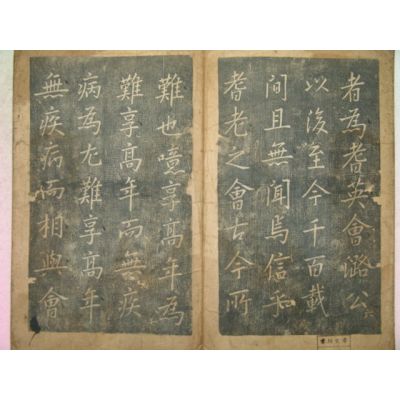 者為耆英會潞公
以後至今千百載
間且無聞焉信乎
耆老之會古今所
難也噫享高年為
難享高年而無疾
病為尤難享高年
無疾病而相與會